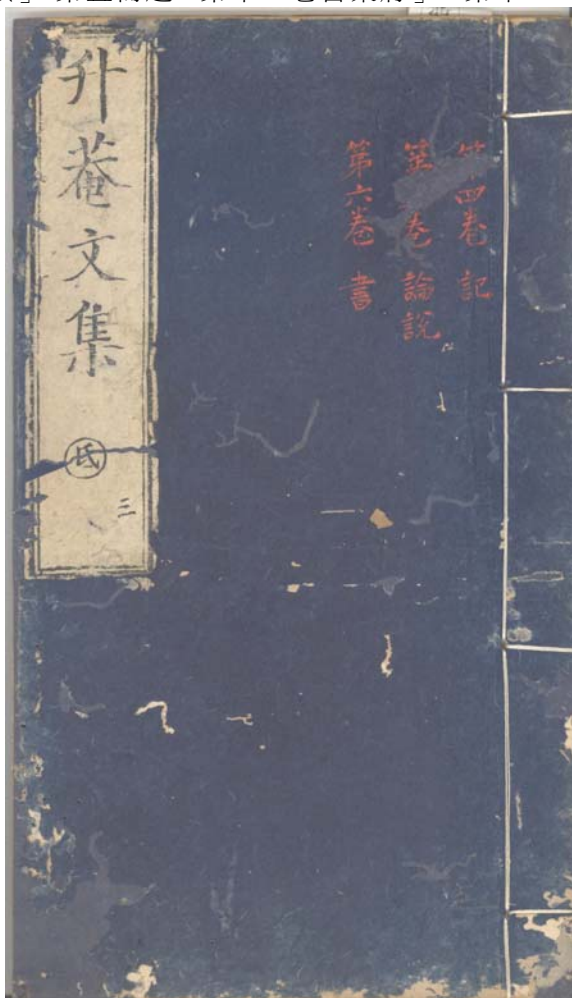 第四卷 記
第 卷 論說
第六卷 書
升菴文集 氐 三